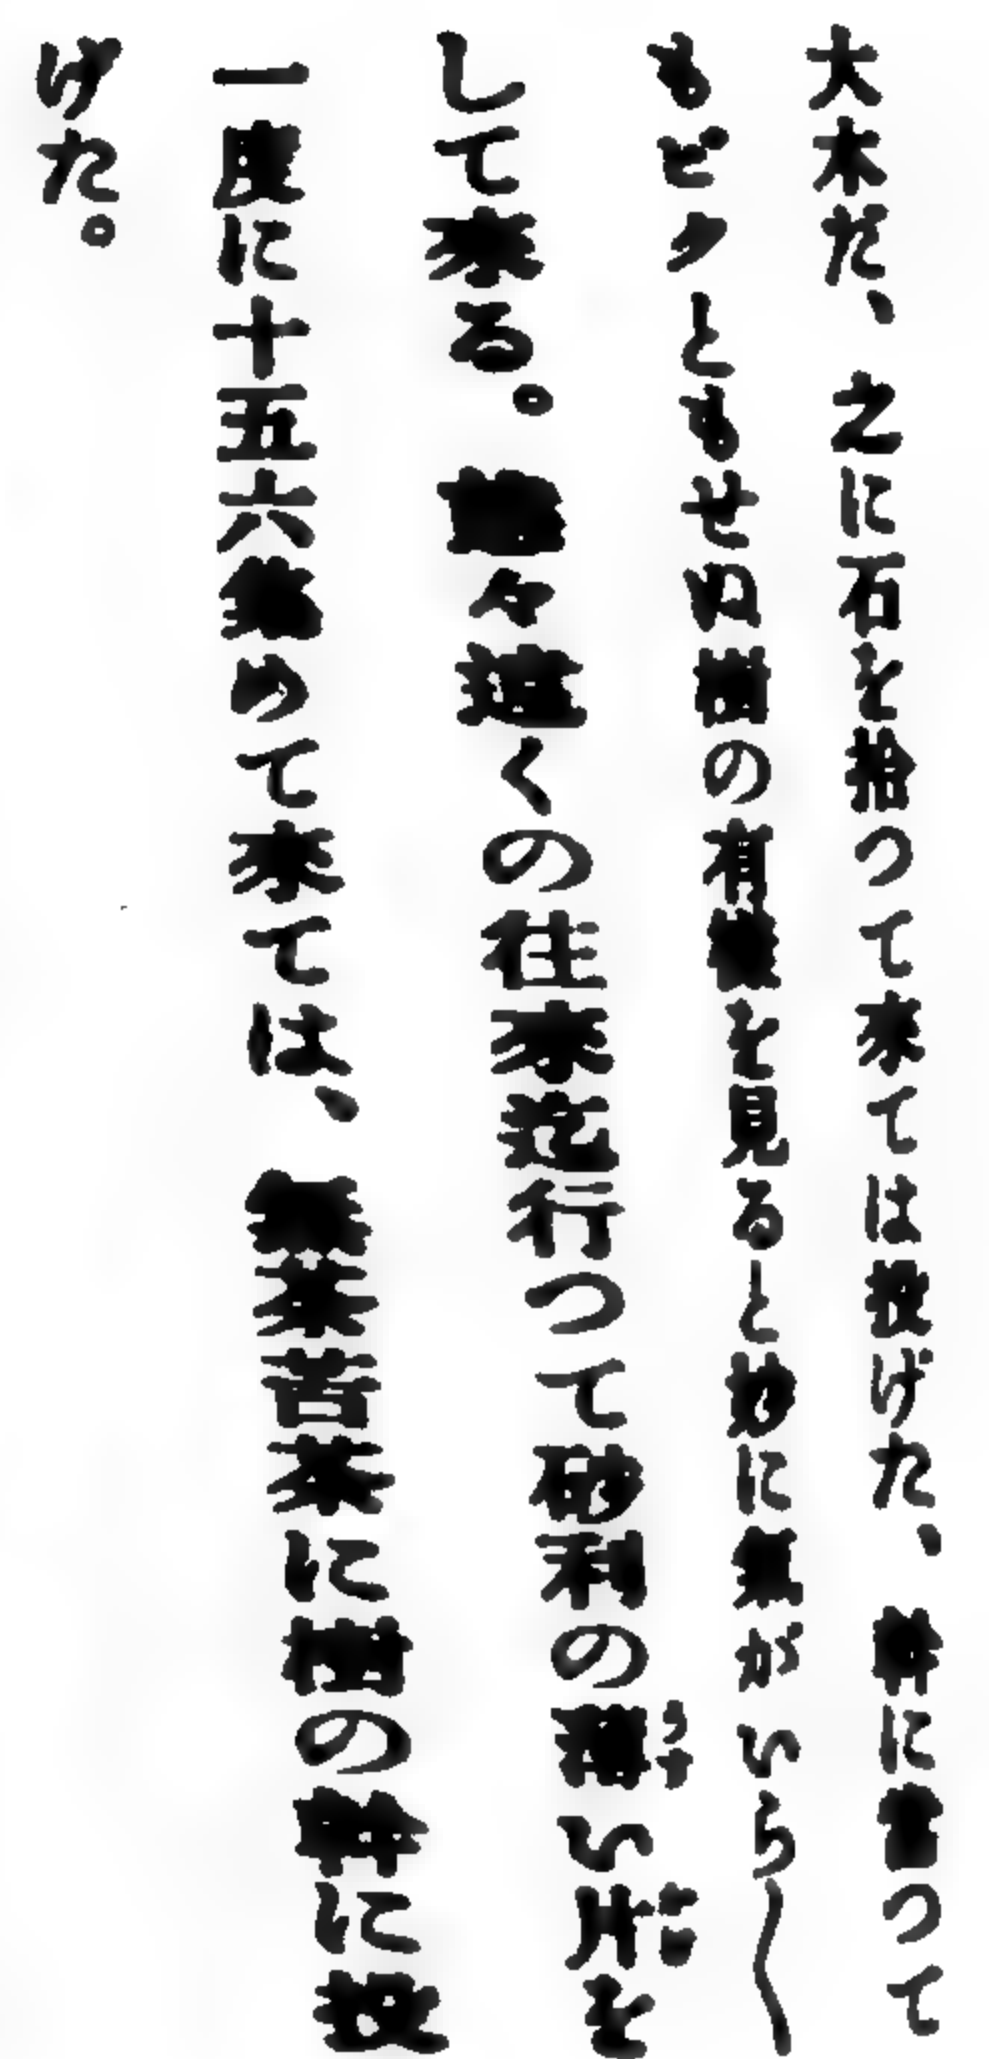 大木だ、之に石を拾つて来ては投げた、幹に當つて
もビクともせぬ樹の有様を見ると妙に氣がいら〳〵
して来る。態々遠くの往来迄行つて砂利の薄い片を
一度に十五六集めて来ては、無茶苦茶に樹の幹に投
げた。